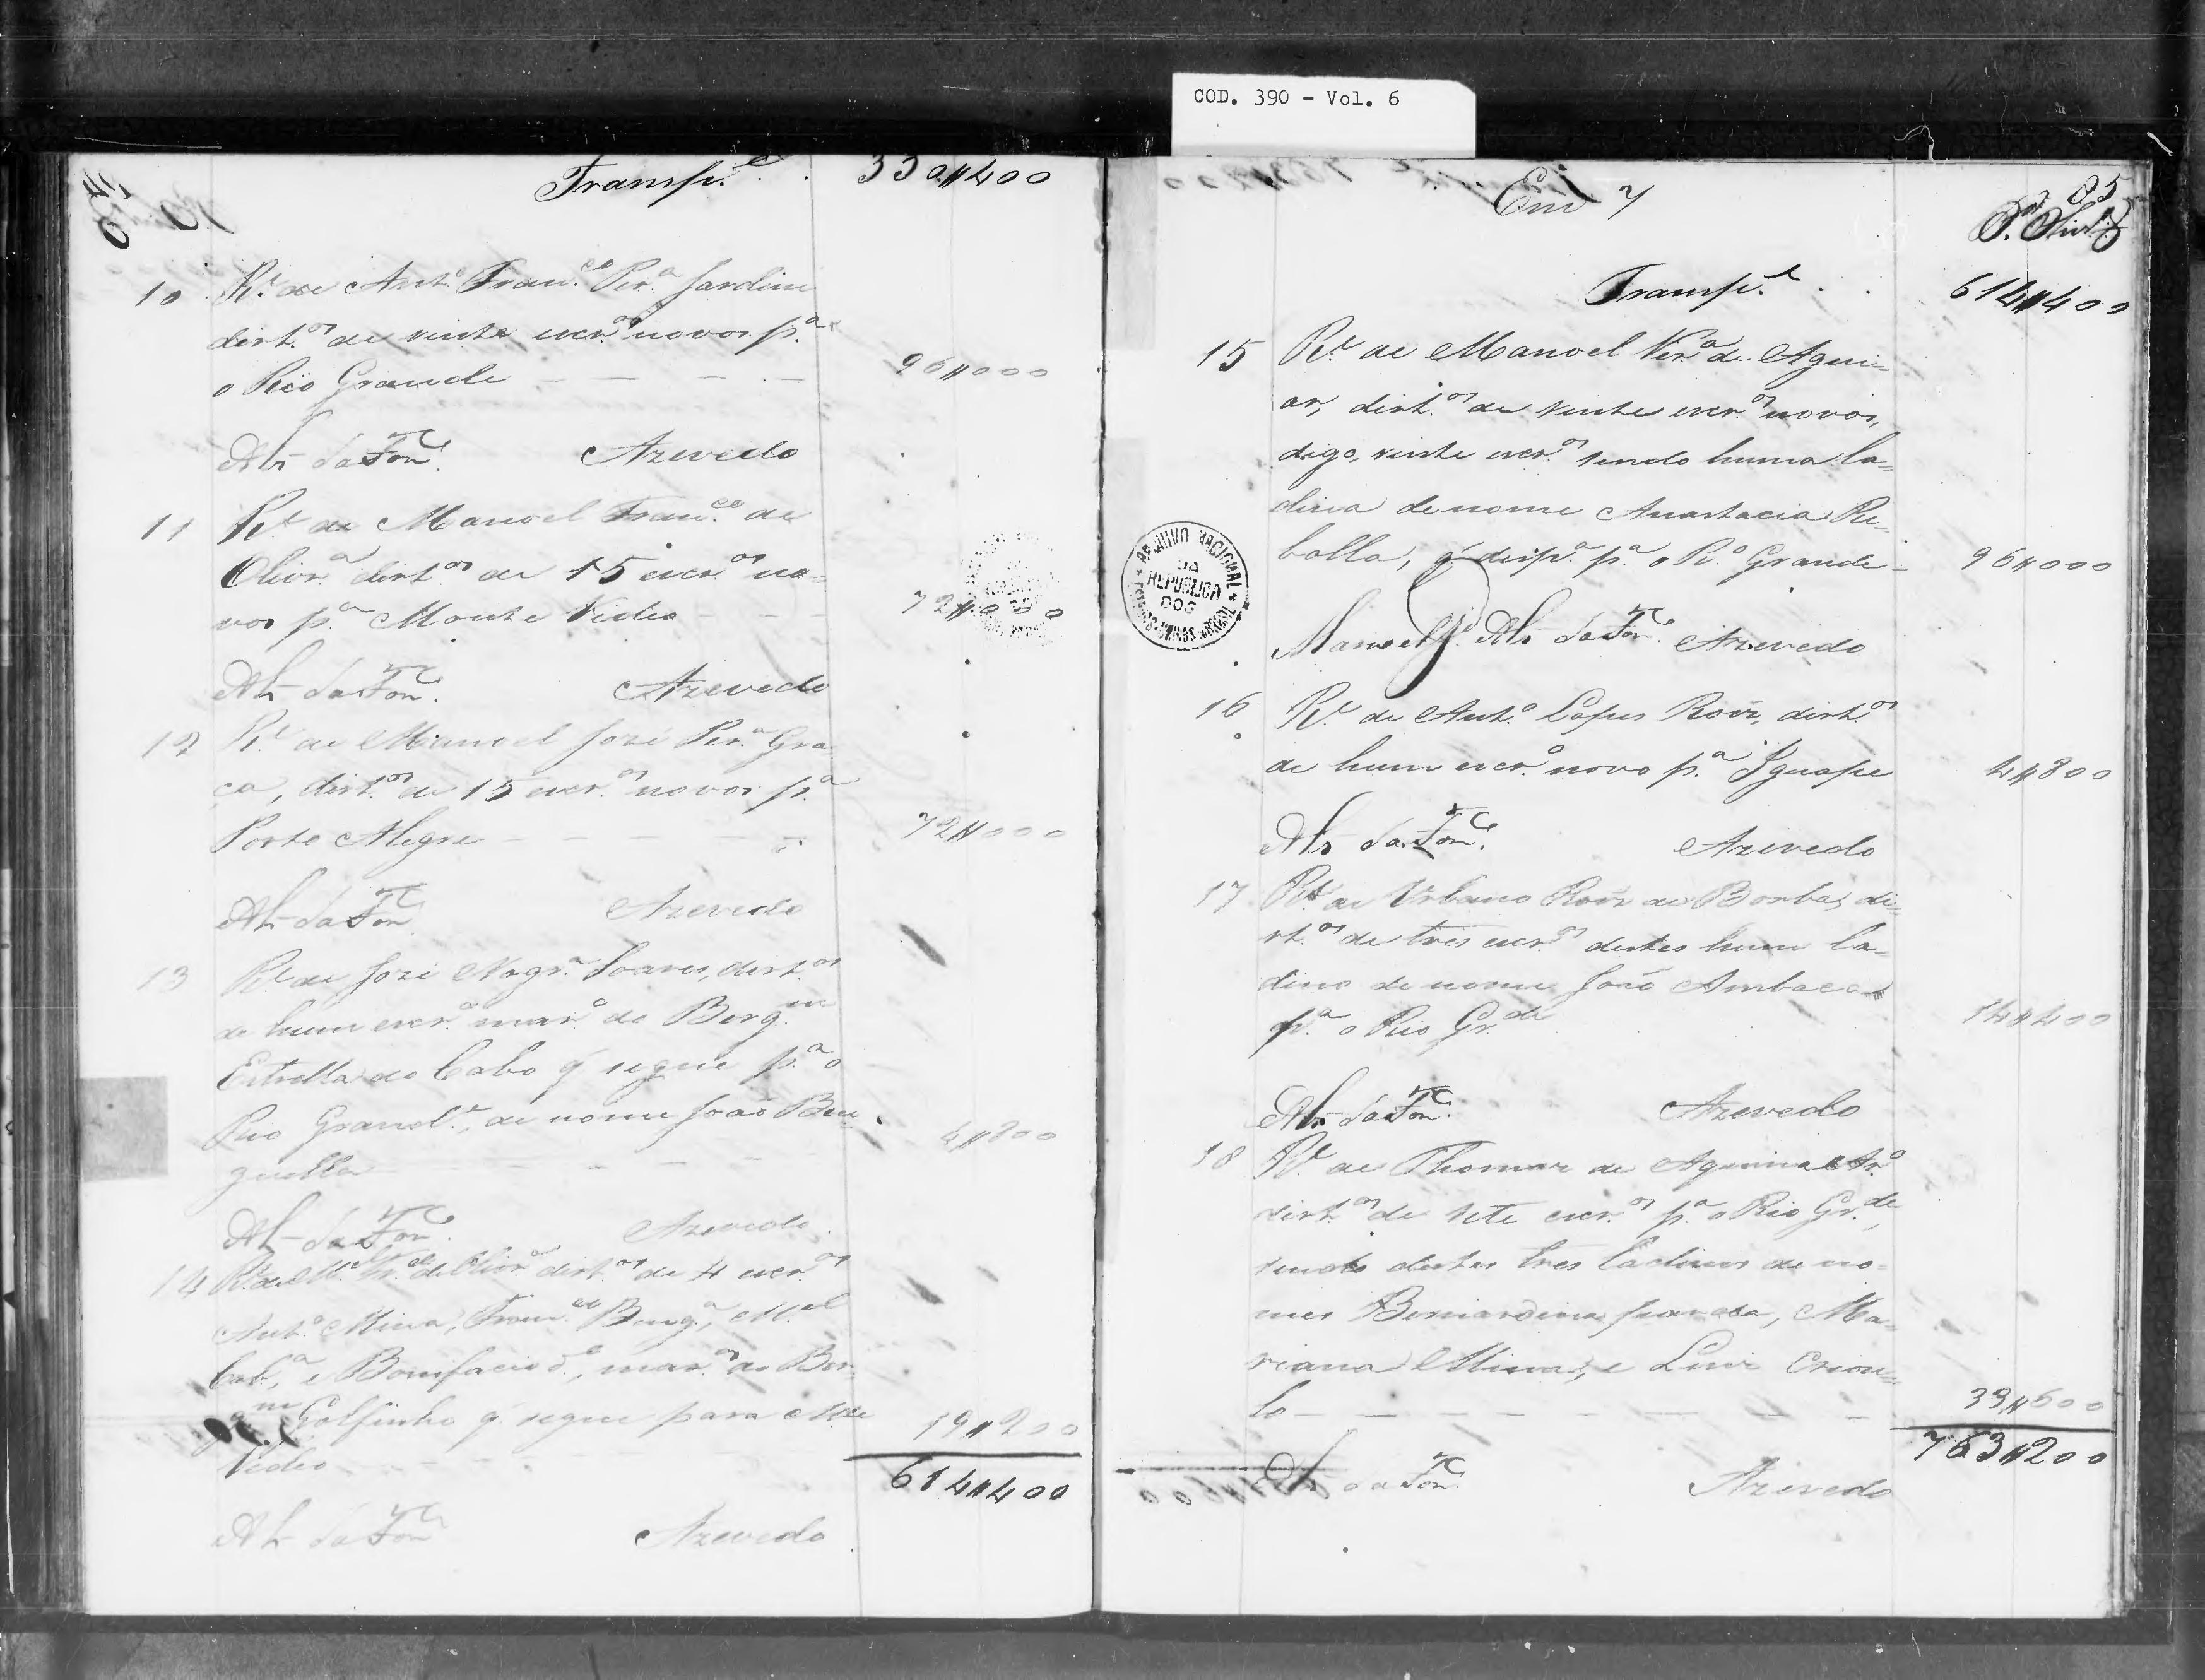 COD. 390 - Vol. 6
Transp.e 350#400
10 R.e de Ant.o Fran.co Per.a Jardim
dirt.os de vinte escr.os novos p.a
o Rio Grande 96#000
Alz da Fon.ca Azevedo
11 R.e de Manoel Fran.co de
Olivr.a dirt.os de 15 escr.os no=
vos p.a Monte Video 72#000
Alz da Fon.ca Azevedo
12 R.e de Manoel José Per.a Gra
ça, dirt.os de 15 escr.os novos p.a
Porto Alegre 72#000
Alz da Fon.ca Azevedo
13 R.e de José Nogr.a Soares, dirt.os
de hum escr.o mar.o do Berg.m
Estrella do Cabo q' segue p.a o
Rio Grand.e, de nome João Ben
guella 4#800
Alz da Fon.ca Azevedo
14 R.e de M.el Fr.co de Olivr.a dirt.os de 4 escr.os
Ant.o Mina, Fran.co Beng.a, M.el
Cab.a, e Bonifacio d.o, mar.os do Ber
g.m Golfinho q' segue para Mte
Video 19#200
614#400
Alz da Fon.ca Azevedo
Em 7
85
Transp.e 614#400
15 R.e de Manoel Vier.a de Agui=
ar, dirt.os de vinte escr.os novos,
digo, vinte escr.os sendo huma la=
dina de nome Anastacia Re
bolla, q' desp.a p.a o R.o Grande 96#000
Manoel Alz da Fon.ca Azevedo
16 R.e de Ant.o Lopes Roiz, dirt.os
de hum escr.o novo p.a Iguape 4#800
Alz da Fon.ca Azevedo
17 R.e de Urbano Roiz de Borba, di=
rt.os de tres escr.os destes hum la=
dino de nome João Ambaca
p.a o Rio Gr.de 14#400
Alz da Fon.ca Azevedo
18 R.e de Thomaz de Aquino e Ar.o
dirt.os de sete escr.os p.a o Rio Gr.de,
sendo destes tres ladinos de no=
mes Bernardina parda, Ma=
riana Mina, e Luiz Criou=
lo 33#600
763#200
Alz da Fon.ca Azevedo
ARQUIVO NACIONAL
DA
REPUBLICA
DOS